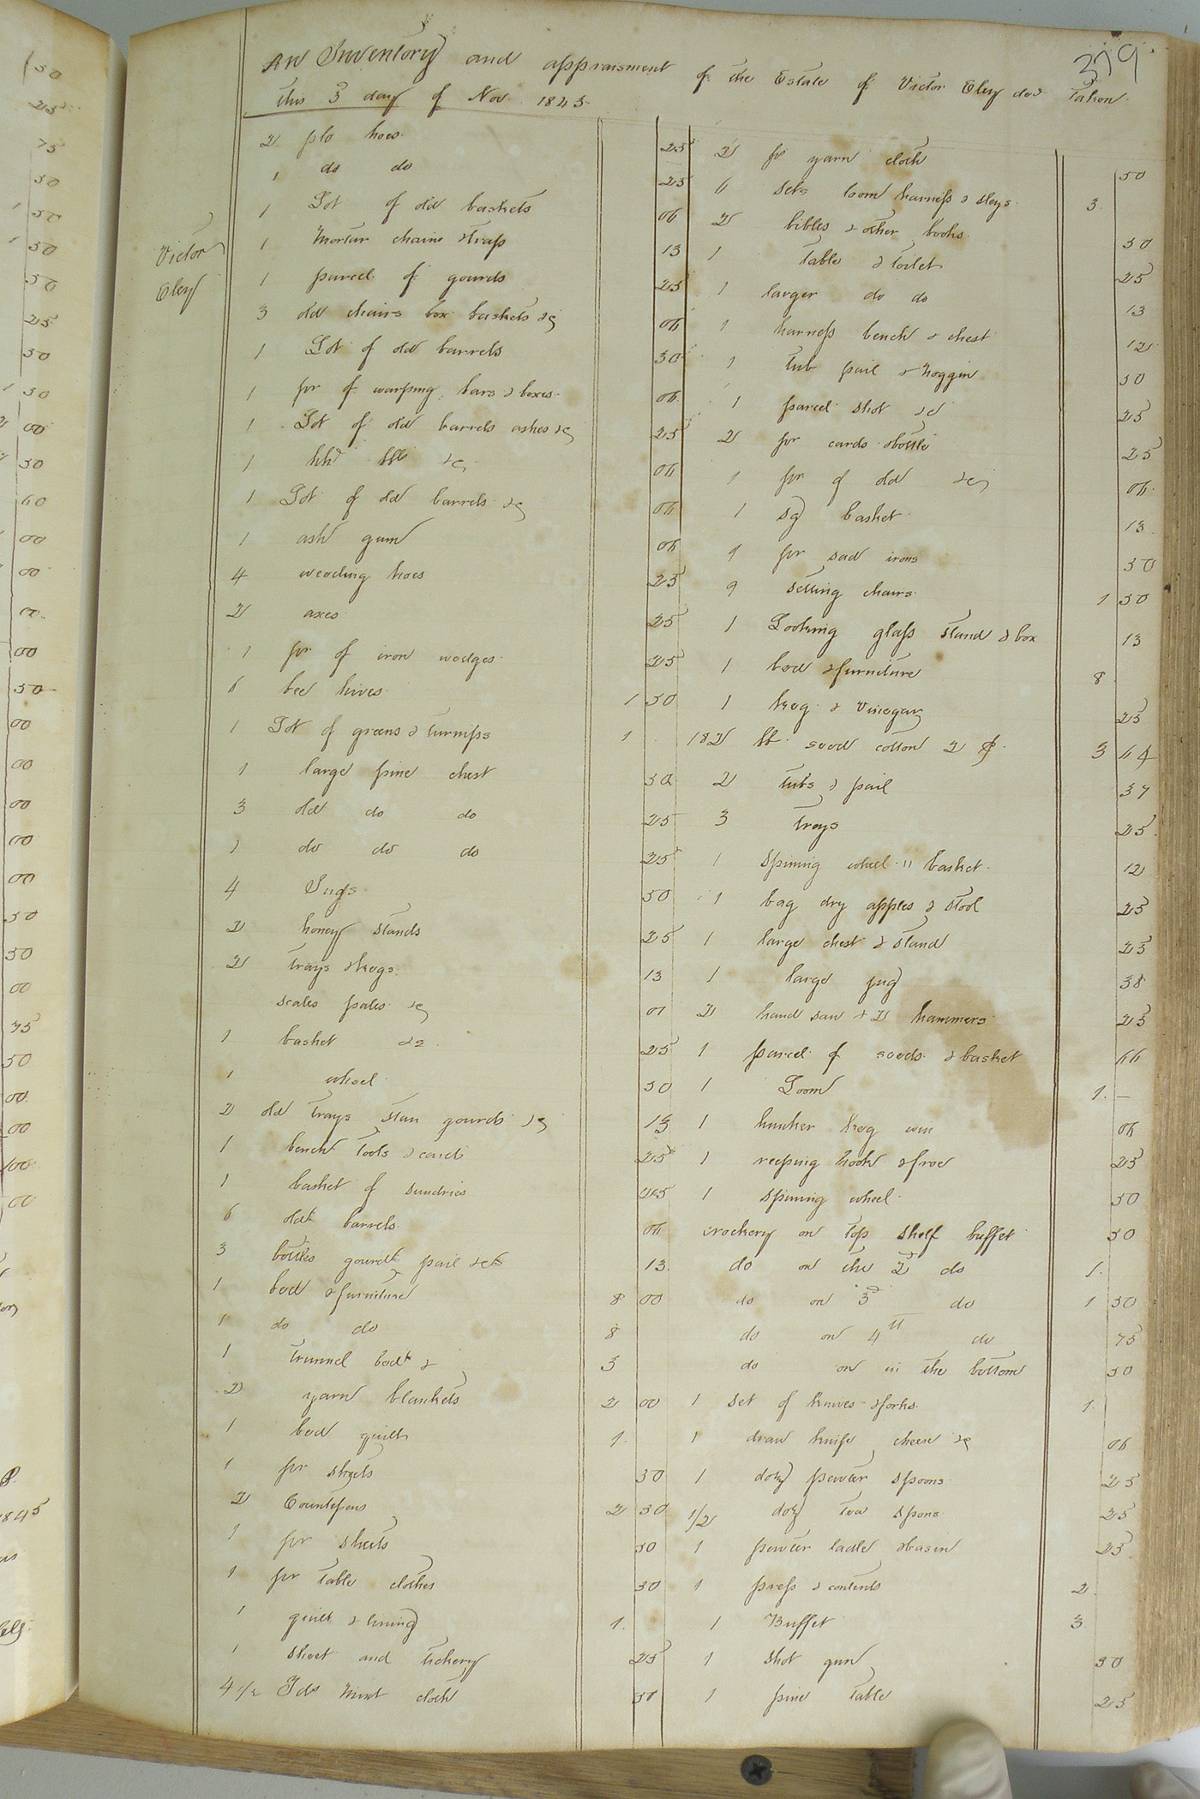 319
An Inventory and appraisment of the Estate of Victor Eley decd Taken
this 3 day of Nov 1845
Victor
Eley
2 plo hoes 25
1 do do 25
1 Lot of old baskets 06
1 Mortar chains & traps 13
1 parcel of gourds 25
3 old chairs box baskets &c 06
1 Lot of old barrels 50
1 pr of warping bars & boxes 06
1 Lot of old barrels ashes &c 25
1 hhd &c 06
1 Lot of old barrels &c 06
1 ash gum 06
4 weeding hoes 25
2 axes 25
1 pr of iron wedges 25
6 bee hives 1 50
1 Lot of greens & turnips 1
1 large pine chest 50
3 old do do 25
1 do do do 25
4 Jugs 50
2 honey stands 25
2 trays & kegs 13
scales pales &c 01
1 basket &c 25
1 wheel 50
2 old trays stan gourds &c 13
1 bench tools & cards 25
1 basket of sundries 25
6 old barrels 06
3 bottles gourds pail &c 13
1 bed & furniture 8 00
1 do do 8
1 trunnel bed & 3
2 yarn blankets 2 00
1 bed quilt 1
1 pr sheets 50
2 Counterpans 2 50
1 pr sheets 50
1 pr table clothes 50
1 quilt & lining 1
1 sheet and tickery 25
4 1/2 Yds Mixt cloth 37
2 ps yarn cloth 50
6 sets loom harness & slays 3
2 bibles & other books 50
1 table & toilet 25
1 larger do do 13
1 harness bench & chest 12
1 tub pail & noggin 50
1 parcel shot &c 25
2 pr cards & bottle 25
1 pr of old &c 06
1 sq basket 13
1 pr sad irons 50
9 setting chairs 1 50
1 Looking glass stand & box 13
1 bed & furniture 8
1 keg & vinegar 25
182 lb seed cotton 2 ¢ 3 64
2 tubs & pail 37
3 trays 25
1 spinning wheel " basket 12
1 bag dry apples & stool 25
1 large chest & stand 25
1 large jug 38
2 hand saw & 2 hammers 25
1 parcel of seeds & basket 66
1 Loom 1 —
1 keg 06
1 reeping hook & froe 25
1 spinning wheel 50
crockery on top shelf buffet 50
do on the 2 do 1
do on 3d do 1 50
do on 4th do 75
do on in the bottom 50
1 set of knives & forks 1
1 draw knife cheese &c 06
1 doz pewter spoons 25
1/2 doz tea spons 25
1 pewter ladle & basin 25
1 press & contents 2
1 Buffet 3
1 shot gun 50
1 pine table 25